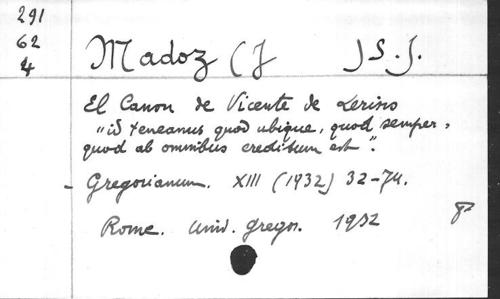 291
62
4
Madoz (J ) S.J.
El Canon de Vicente de Lerins
"id teneamus quod ubique, quod semper,
quod ab omnibus creditum est".
- Gregorianum. XIII (1932) 32-74.
Rome. Univ. Gregor. 1932